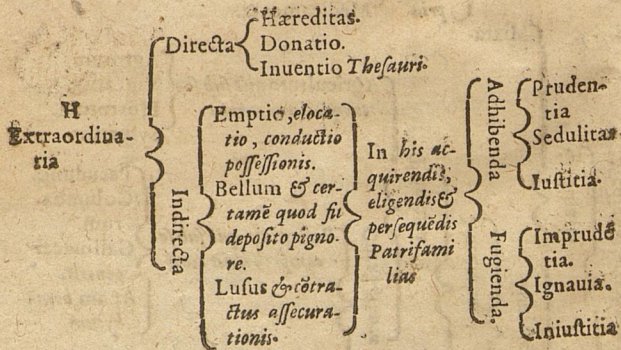 H
Extraordina-
ria
Directa
Hæreditas.
Donatio.
Inuentio Theſauri.
Indirecta
Emptio, eloca-
tio, conductio
poſſeſſionis.
Bellum & cer-
tamē quod fit
depoſito pigno-
re.
Luſus & cōtra-
ctus aſſecura-
tionis.
In his ac-
quirendis,
eligendis &
perſequēdis
Patrifami
lias
Adhibenda
Pruden-
tia
Sedulitas
Iuſtitia.
Fugienda.
Imprudē
tia.
Ignauia.
Iniuſtitia